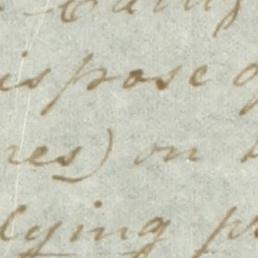 ispose o
res) on
lying p